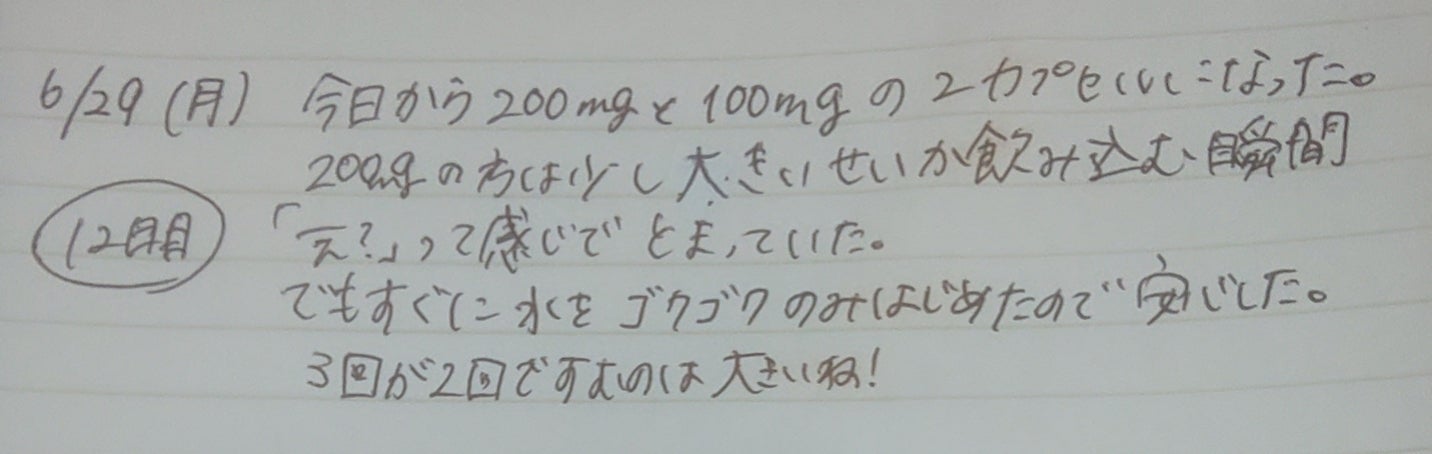 6/29(月) 今日から200mgと100mgの2カプセルになった。
200mgの方は少し大きいせいか飲み込む瞬間
12日目
「え?」って感じでとまっていた。
でもすぐに水をゴクゴクのみはじめたので安心した。
3回が2回ですむのは大きいね!